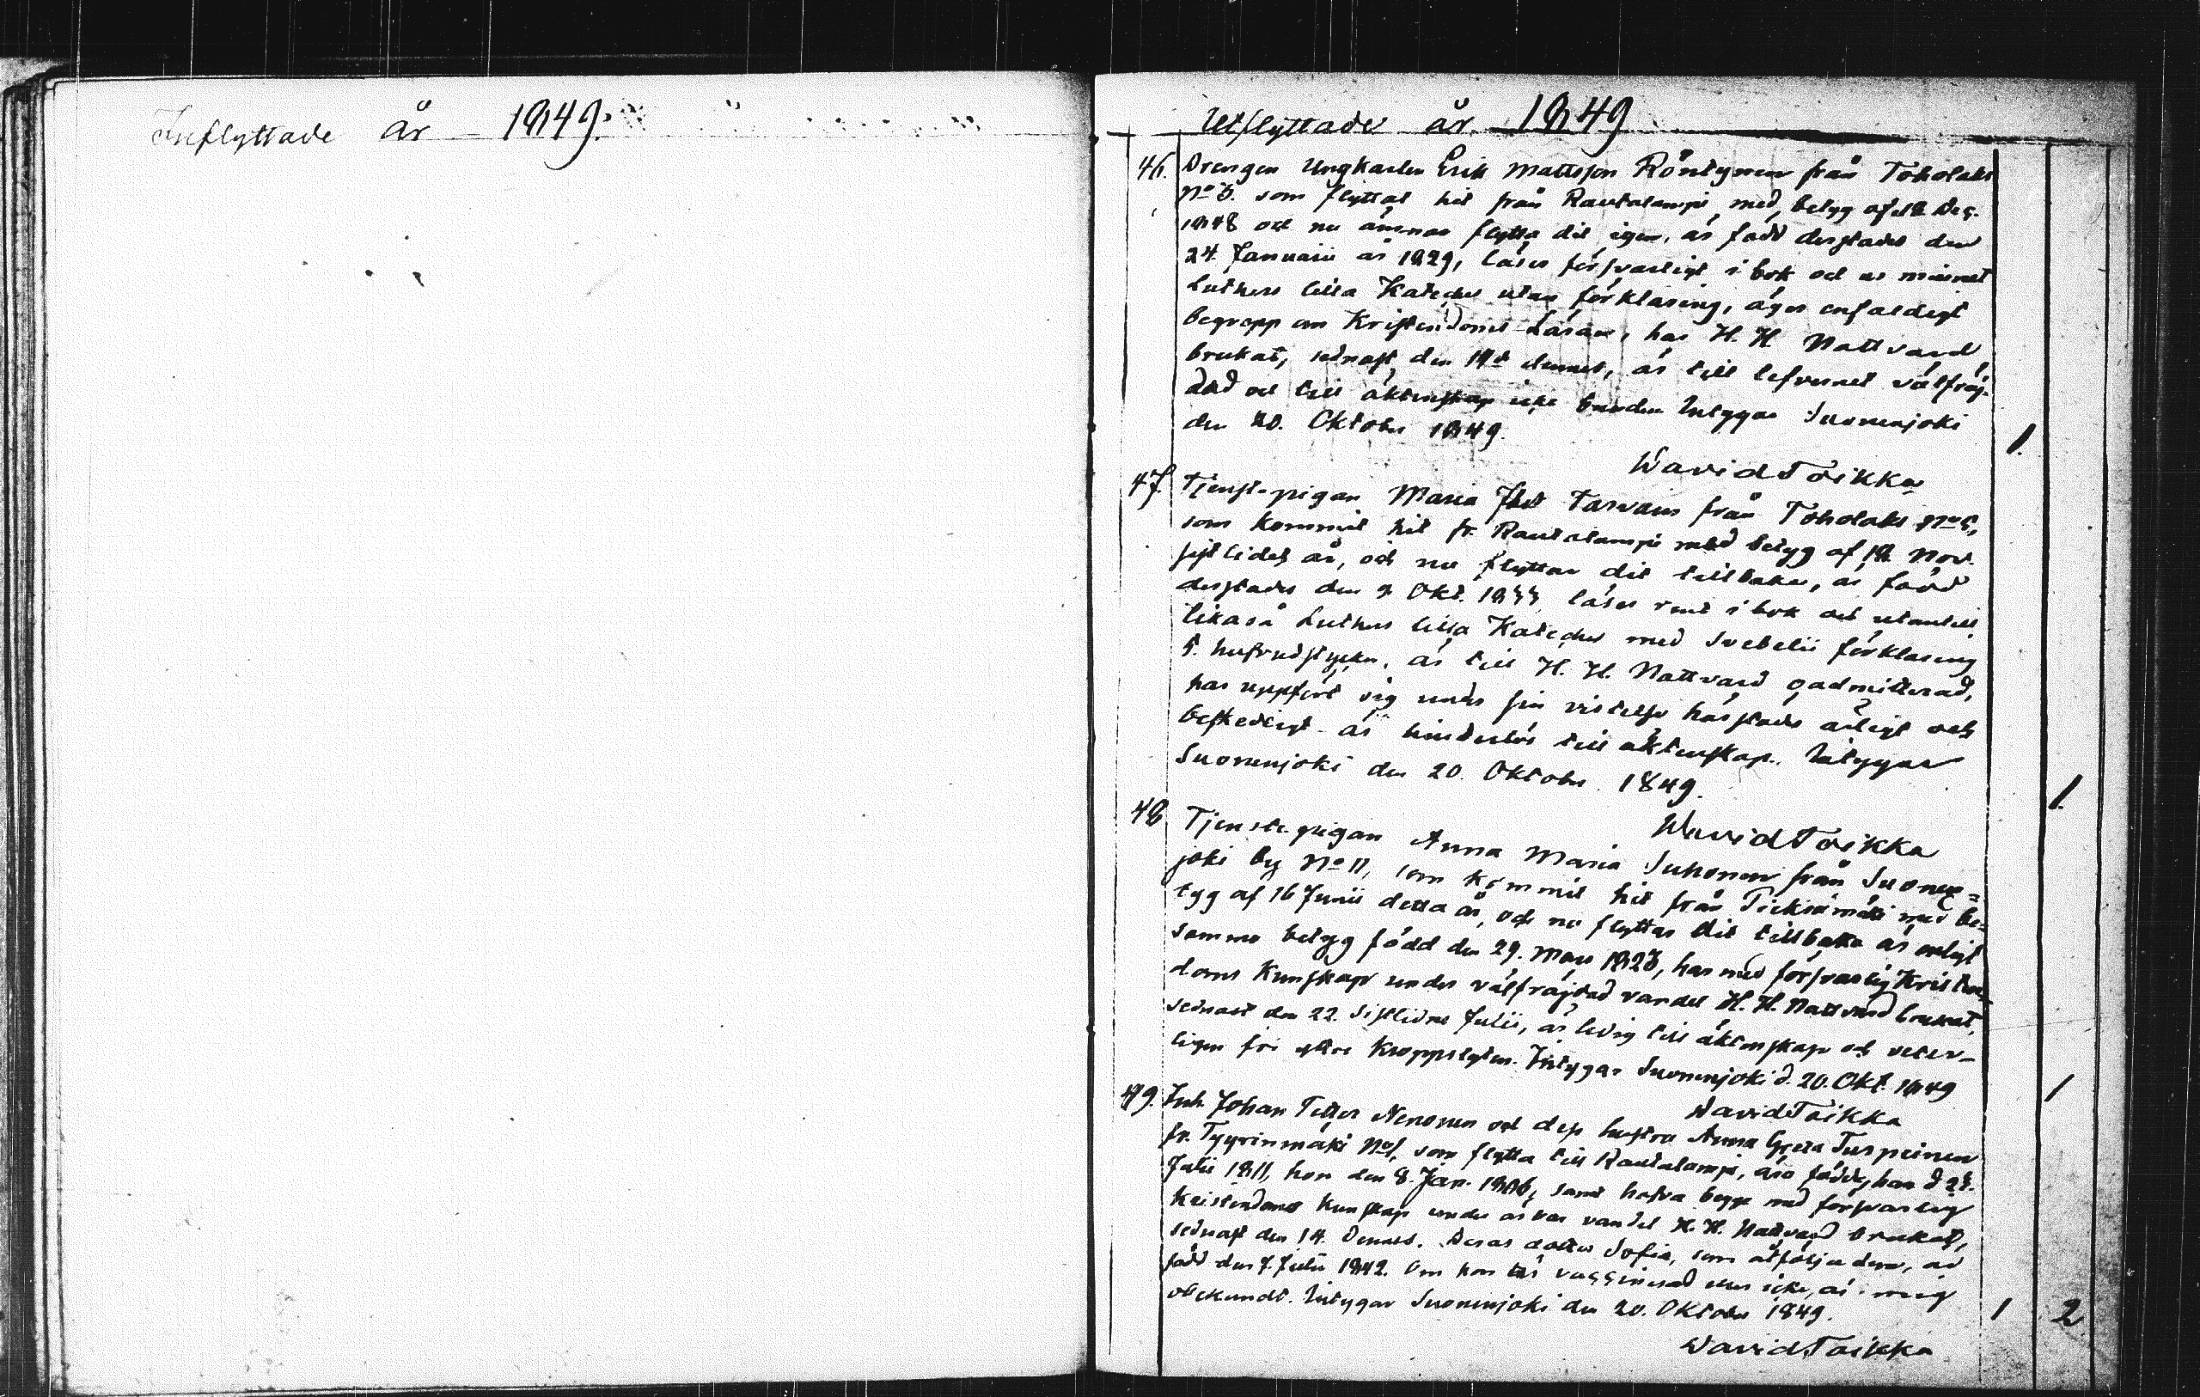 Inflyttade år 1849.
Utflyttade år 1849
46. Drengen Ungkarlen Erik Mattsson Röntynen från Toholaks
No 5. som flyttat hit från Rautalampi med betyg af d. 12 Dec.
1848 och nu ämnar flytta dit igen, är född derstädes den
24. Januarii år 1829, läser försvarligt i bok och ur minnet
Luthers lilla Kateches utan förklaring, äger enfaldigt
begrepp om Kristendoms Läran, har H. H. Nattvard
brukat, sednast den 14de dennes, är till lefvernet välfräj-
dad och till äktenskap icke bunden Intygar Suonenjoki
den 20. Oktober 1849. 1.
David Toikka
47. Tjenste-pigan Maria Tarvain från Toholaks No 5,
som kommit hit fr. Rautalampi med betyg af 12 Nov.
sistlidet år, och nu flyttar dit tillbaka, är född
derstädes den 9 Okt. 1833, läser rent i bok och utantill
likaså Luthers lilla Kateches med Svebelii förklaring
5. hufvudstycken, är till H. H. Nattvard admitterad,
har uppfört sig under sin vistelse härstädes ärligt och
beskedligt - är hinderlös till äktenskap. Intygar
Suonenjoki den 20. Oktober 1849. 1.
David Toikka
48 Tjenste-pigan Anna Maria Suhonen från Suonen=
joki by No 11, som kommit hit från Pieksämäki med be-
tyg af 16 Junii detta år, och nu flyttar dit tillbaka är enligt
samma betyg född den 29. Mars 1823, har med försvarlig Kristen-
doms Kunskap under välfräjdad vandel H. H. Nattvard brukat,
sednast den 22. sistlidne Julii, är ledig till äktenskap och veter-
ligen fri yttre kroppslyten. Intygar Suonenjoki d. 20. Okt. 1849 1
David Toikka
49. Inh. Johan Petter Nenonen och dess hustru Anna Greta Turpeinen
fr. Tyyrinmäki No 1, som flytta till Rautalampi, äro födde, han d 23.
Julii 1811, hon den 8. Jan. 1806, samt hafva begge med försvarlig
Kristendoms Kunskap under ärbar vandel H. H. Nattvard brukat,
sednast den 14. Dennes. Deras dotter Sofia, som åtfölja dem, är
född den 7. Julii 1842. Om hon är vaccinerad eller icke, är mig
obekandt. Intygar Suonenjoki den 20. Oktober 1849. 1 2
David Toikka